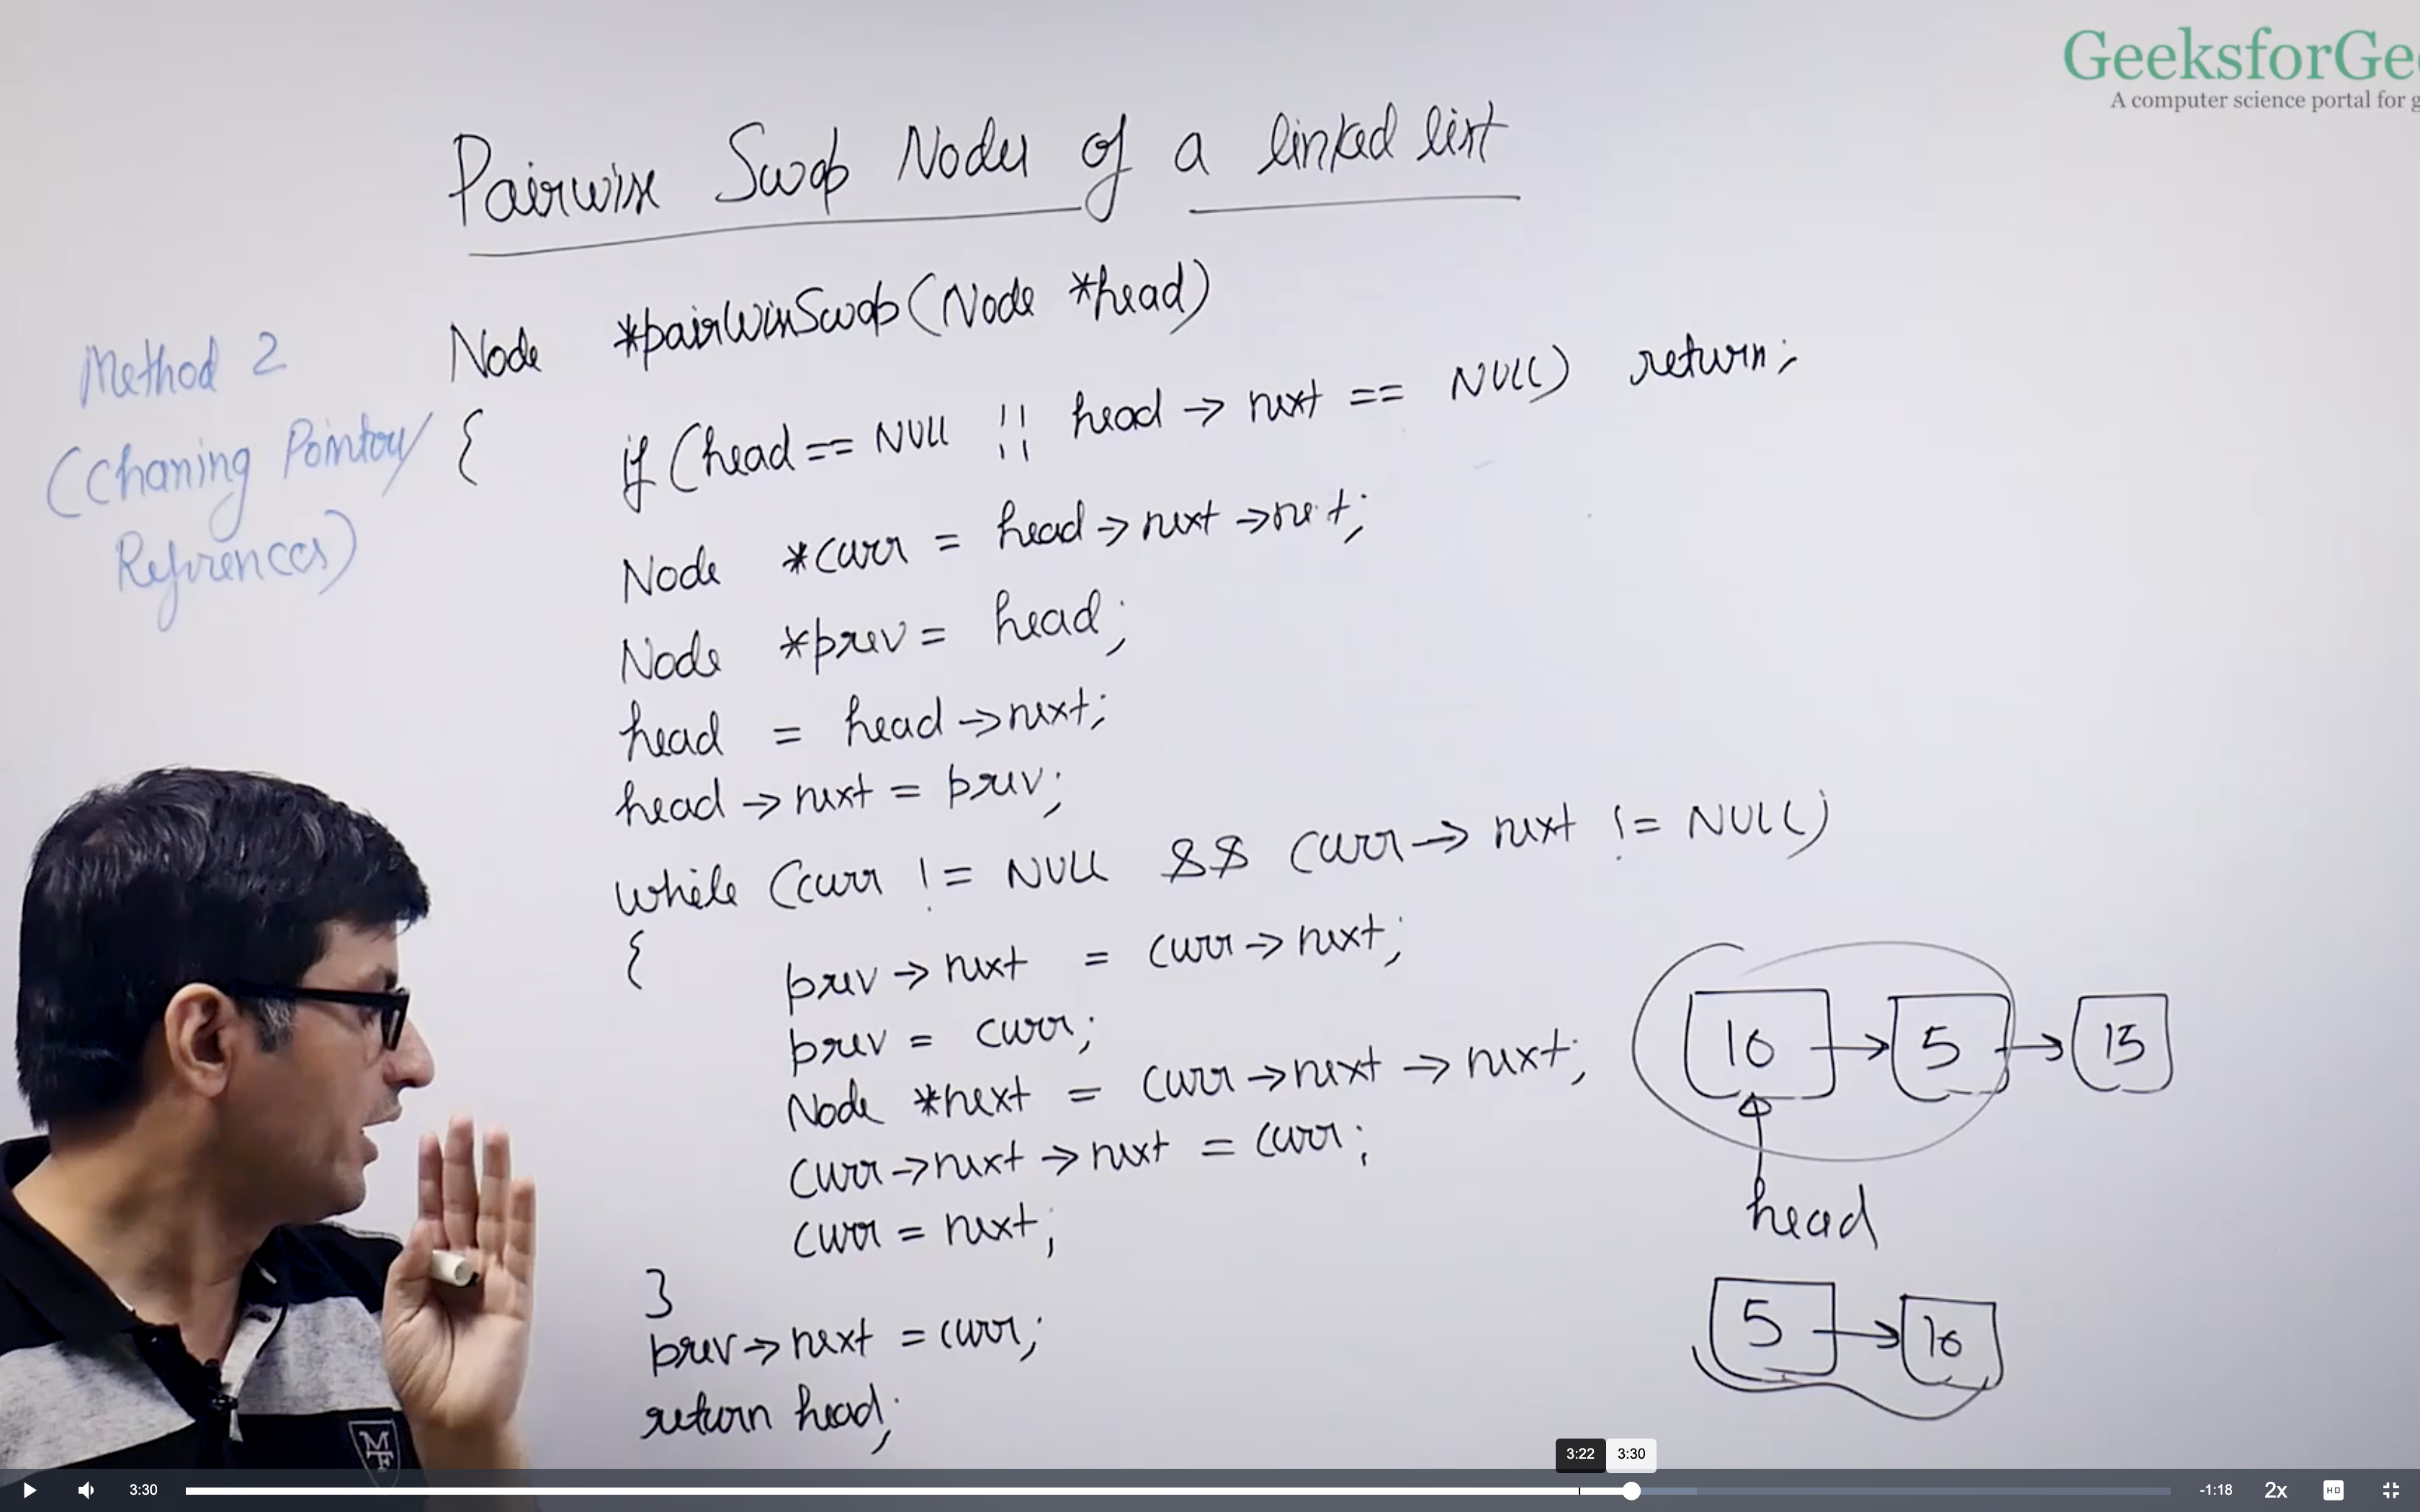 GeeksforGee
A computer science portal for g
Pairwise Swap Nodes of a linked list
Method 2
(Chaning Pointers/
References)
Node *pairWiseSwap(Node *head)
{
if (head == NULL || head → next == NULL) return;
Node *curr = head → next → next;
Node *prev = head;
head = head → next;
head → next = prev;
while (curr != NULL && curr → next != NULL)
{
prev → next = curr → next;
prev = curr;
Node *next = curr → next → next;
curr → next → next = curr;
curr = next;
}
prev → next = curr;
return head;
10 → 5 → 15
head
5 → 10
MF
3:22 3:30
3:30 -1:18 2x HD